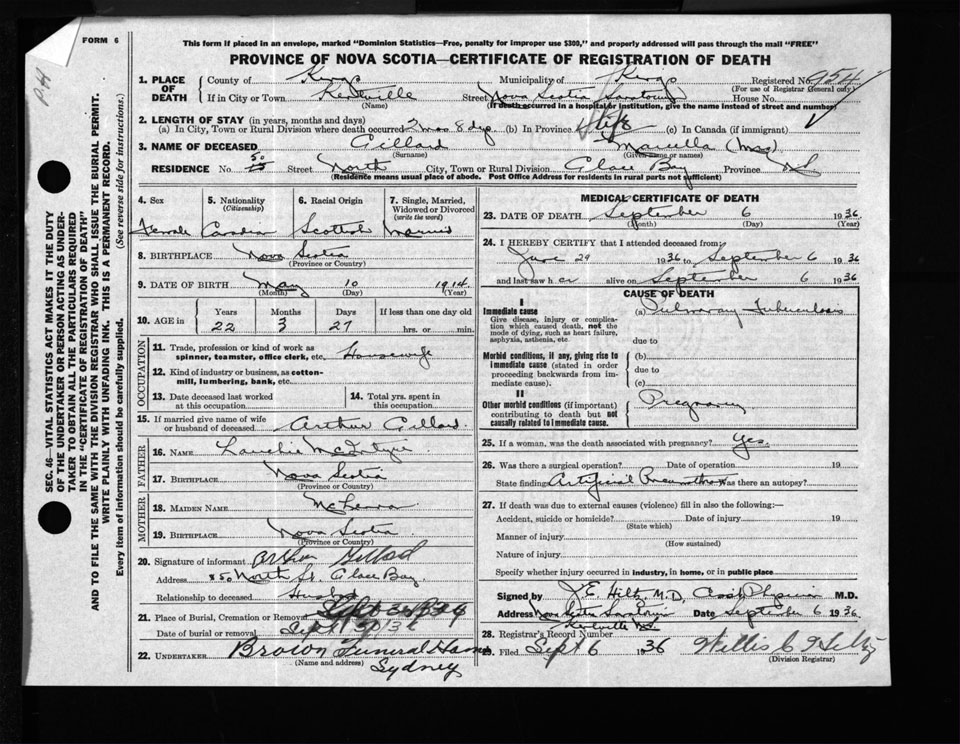 FORM 6
This form if placed in an envelope, marked "Dominion Statistics—Free, penalty for improper use $300," and properly addressed will pass through the mail "FREE"
PROVINCE OF NOVA SCOTIA—CERTIFICATE OF REGISTRATION OF DEATH
SEC. 46—VITAL STATISTICS ACT MAKES IT THE DUTY
OF THE UNDERTAKER OR PERSON ACTING AS UNDER-
TAKER TO OBTAIN ALL THE PARTICULARS REQUIRED
IN THE "CERTIFICATE OF REGISTRATION OF DEATH"
AND TO FILE THE SAME WITH THE DIVISION REGISTRAR WHO SHALL ISSUE THE BURIAL PERMIT.
WRITE PLAINLY WITH UNFADING INK. THIS IS A PERMANENT RECORD.
Every item of information should be carefully supplied. (See reverse side for instructions.)
1. PLACE OF DEATH County of Kings Municipality of Kings Registered No. 954
(For use of Registrar General only)
If in City or Town Kentville Street Nova Scotia Sanatorium House No.
(Name) (If death occurred in a hospital or institution, give the name instead of street and number)
2. LENGTH OF STAY (in years, months and days)
(a) In City, Town or Rural Division where death occurred 2 mos 8 dys (b) In Province Life (c) In Canada (if immigrant)
3. NAME OF DECEASED Gillard Marcella (Mrs)
(Surname) (Given name or names)
RESIDENCE No. 50 Street North City, Town or Rural Division Glace Bay Province NS
(Residence means usual place of abode. Post Office Address for residents in rural parts not sufficient)
4. Sex 5. Nationality (Citizenship) 6. Racial Origin 7. Single, Married, Widowed or Divorced (write the word)
Female Canadian Scottish Married
8. BIRTHPLACE Nova Scotia
(Province or Country)
9. DATE OF BIRTH May 10 1914
(Month) (Day) (Year)
10. AGE in Years Months Days If less than one day old
22 3 27 hrs. or min.
OCCUPATION
11. Trade, profession or kind of work as spinner, teamster, office clerk, etc. Housewife
12. Kind of industry or business, as cotton-mill, lumbering, bank, etc.
13. Date deceased last worked at this occupation 14. Total yrs. spent in this occupation
15. If married give name of wife or husband of deceased Arthur Gillard
FATHER
16. NAME McIntyre
17. BIRTHPLACE Nova Scotia
(Province or Country)
MOTHER
18. MAIDEN NAME McKenna
19. BIRTHPLACE Nova Scotia
(Province or Country)
20. Signature of informant Arthur Gillard
Address 850 North St. Glace Bay
Relationship to deceased Husband
21. Place of Burial, Cremation or Removal
Date of burial or removal Sept
22. UNDERTAKER Brown Funeral Home
(Name and address) Sydney
MEDICAL CERTIFICATE OF DEATH
23. DATE OF DEATH September 6 1936
(Month) (Day) (Year)
24. I HEREBY CERTIFY that I attended deceased from:
June 29 1936 to September 6 1936
and last saw her alive on September 6 1936
CAUSE OF DEATH
I
Immediate cause
Give disease, injury or complication which caused death, not the mode of dying, such as heart failure, asphyxia, asthenia, etc.
(a) Pulmonary Tuberculosis
due to
Morbid conditions, if any, giving rise to immediate cause (stated in order proceeding backwards from immediate cause).
(b)
due to
(c)
II
Other morbid conditions (if important) contributing to death but not causally related to immediate cause.
Pregnancy
25. If a woman, was the death associated with pregnancy? Yes.
26. Was there a surgical operation? Date of operation 19
State findings Artificial Pneumothorax Was there an autopsy?
27. If death was due to external causes (violence) fill in also the following:—
Accident, suicide or homicide? Date of injury 19
(State which)
Manner of injury
(How sustained)
Nature of injury
Specify whether injury occurred in industry, in home, or in public place
Signed by J.E. Hiltz M.D., Asst Physician M.D.
Address Nova Scotia Sanatorium Date September 6 1936
Kentville N.S.
28. Registrar's Record Number
29. Filed Sept 6 1936
(Division Registrar)